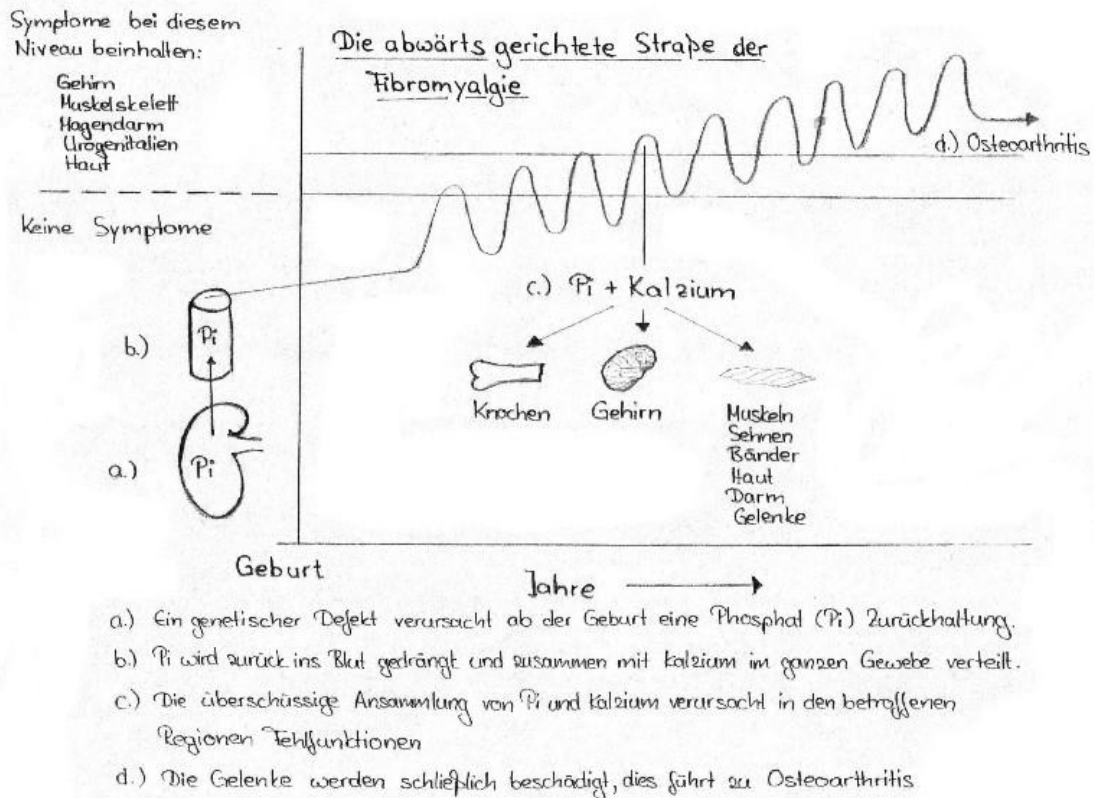 Symptome bei diesem
Niveau beinhalten:
Gehirn
Muskelskelett
Magendarm
Urogenitalien
Haut
Keine Symptome
Die abwärts gerichtete Straße der
Fibromyalgie
d.) Osteoarthritis
c.) Pi + Kalzium
Knochen
Gehirn
Muskeln
Sehnen
Bänder
Haut
Darm
Gelenke
b.)
Pi
a.)
Pi
Geburt
Jahre
a.) Ein genetischer Defekt verursacht ab der Geburt eine Phosphat (Pi) Zurückhaltung.
b.) Pi wird zurück ins Blut gedrängt und zusammen mit Kalzium im ganzen Gewebe verteilt.
c.) Die überschüssige Ansammlung von Pi und Kalzium verursacht in den betroffenen
Regionen Fehlfunktionen
d.) Die Gelenke werden schließlich beschädigt, dies führt zu Osteoarthritis